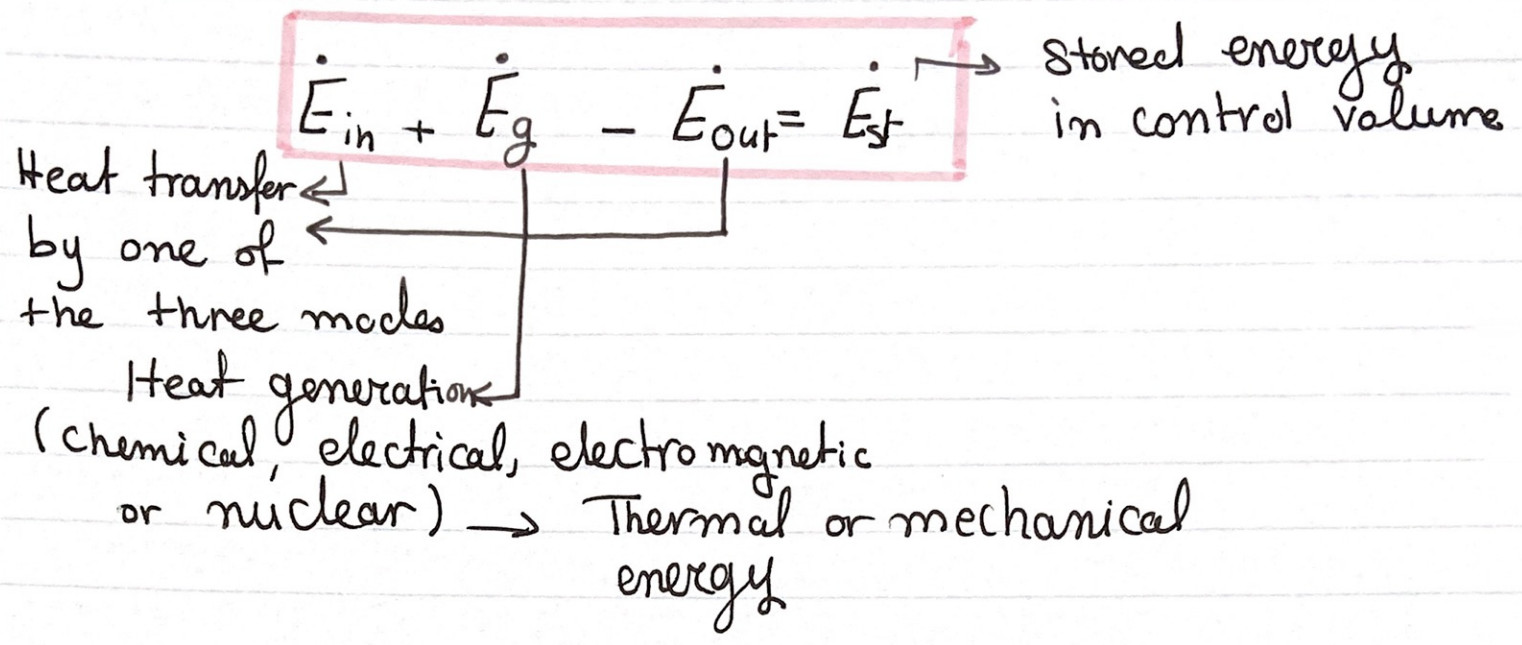 Ėin + Ėg - Ėout = Ėst → stored energy
in control volume
Heat transfer
by one of
the three modes
Heat generation
(chemical, electrical, electromgnetic
or nuclear) → Thermal or mechanical
energy